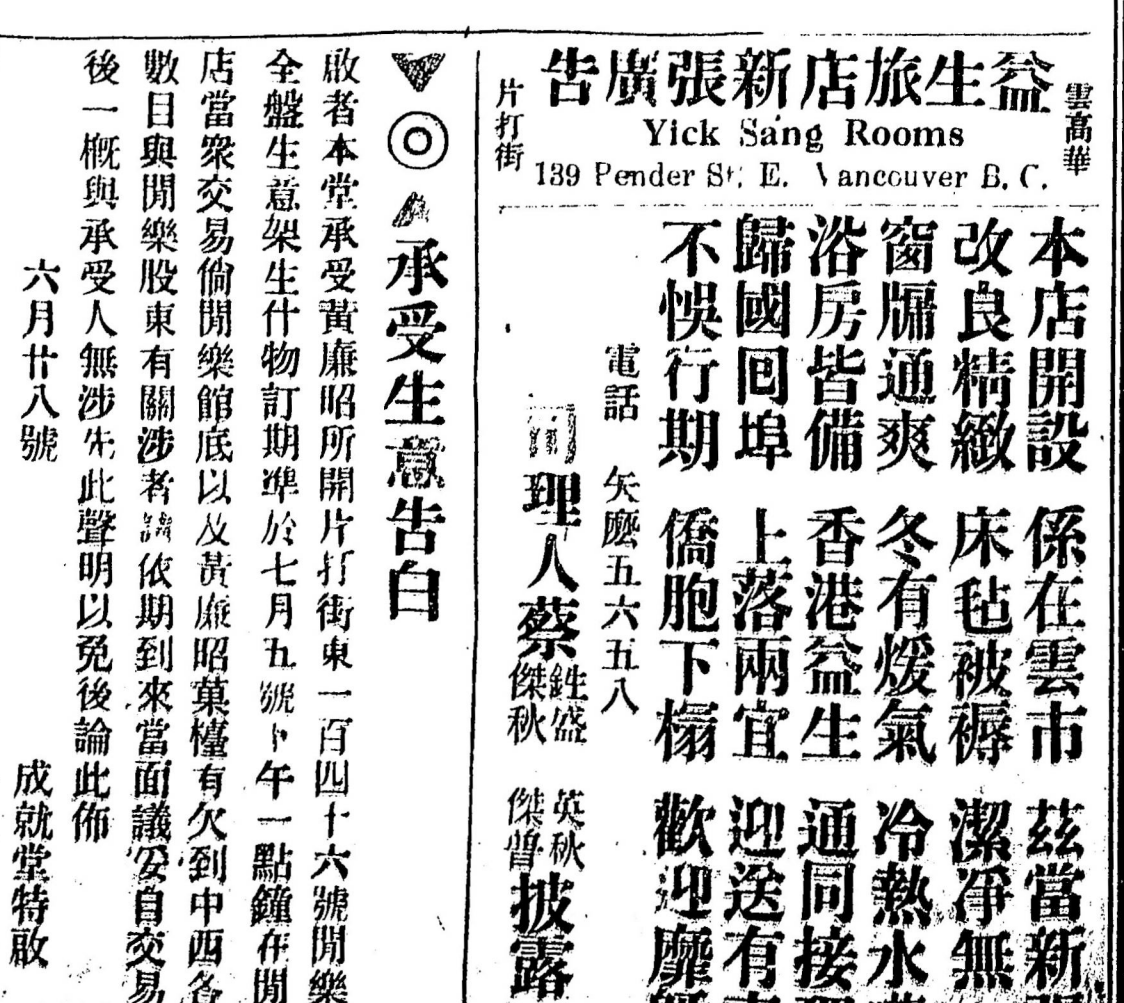 雲高華
益生旅店新張廣告
片打街
Yick Sang Rooms
139 Pender St. E. Vancouver B. C.
本店開設 係在雲市 茲當新
改良精緻 床毡被褥 潔淨無
窗牖通爽 冬有煖氣 冷熱水
浴房皆備 香港益生 通同接
歸國回埠 上落兩宜 迎送有
不悞行期 僑胞下榻 歡迎靡
電話 矢麽五六五八
理人蔡
鉎盛 英秋
傑秋 傑曾
披露
承受生意告白
啟者本堂承受黃廉昭所開片打街東一百四十六號閒樂
全盤生意架生什物訂期準於七月五號卜午一點鐘在閒
店當衆交易倘閒樂館底以及黃廉昭菓檯有欠到中西各
數目與閒樂股東有關涉者請依期到來當面議妥自交易
後一概與承受人無涉先此聲明以免後論此佈
六月廿八號
成就堂特啟